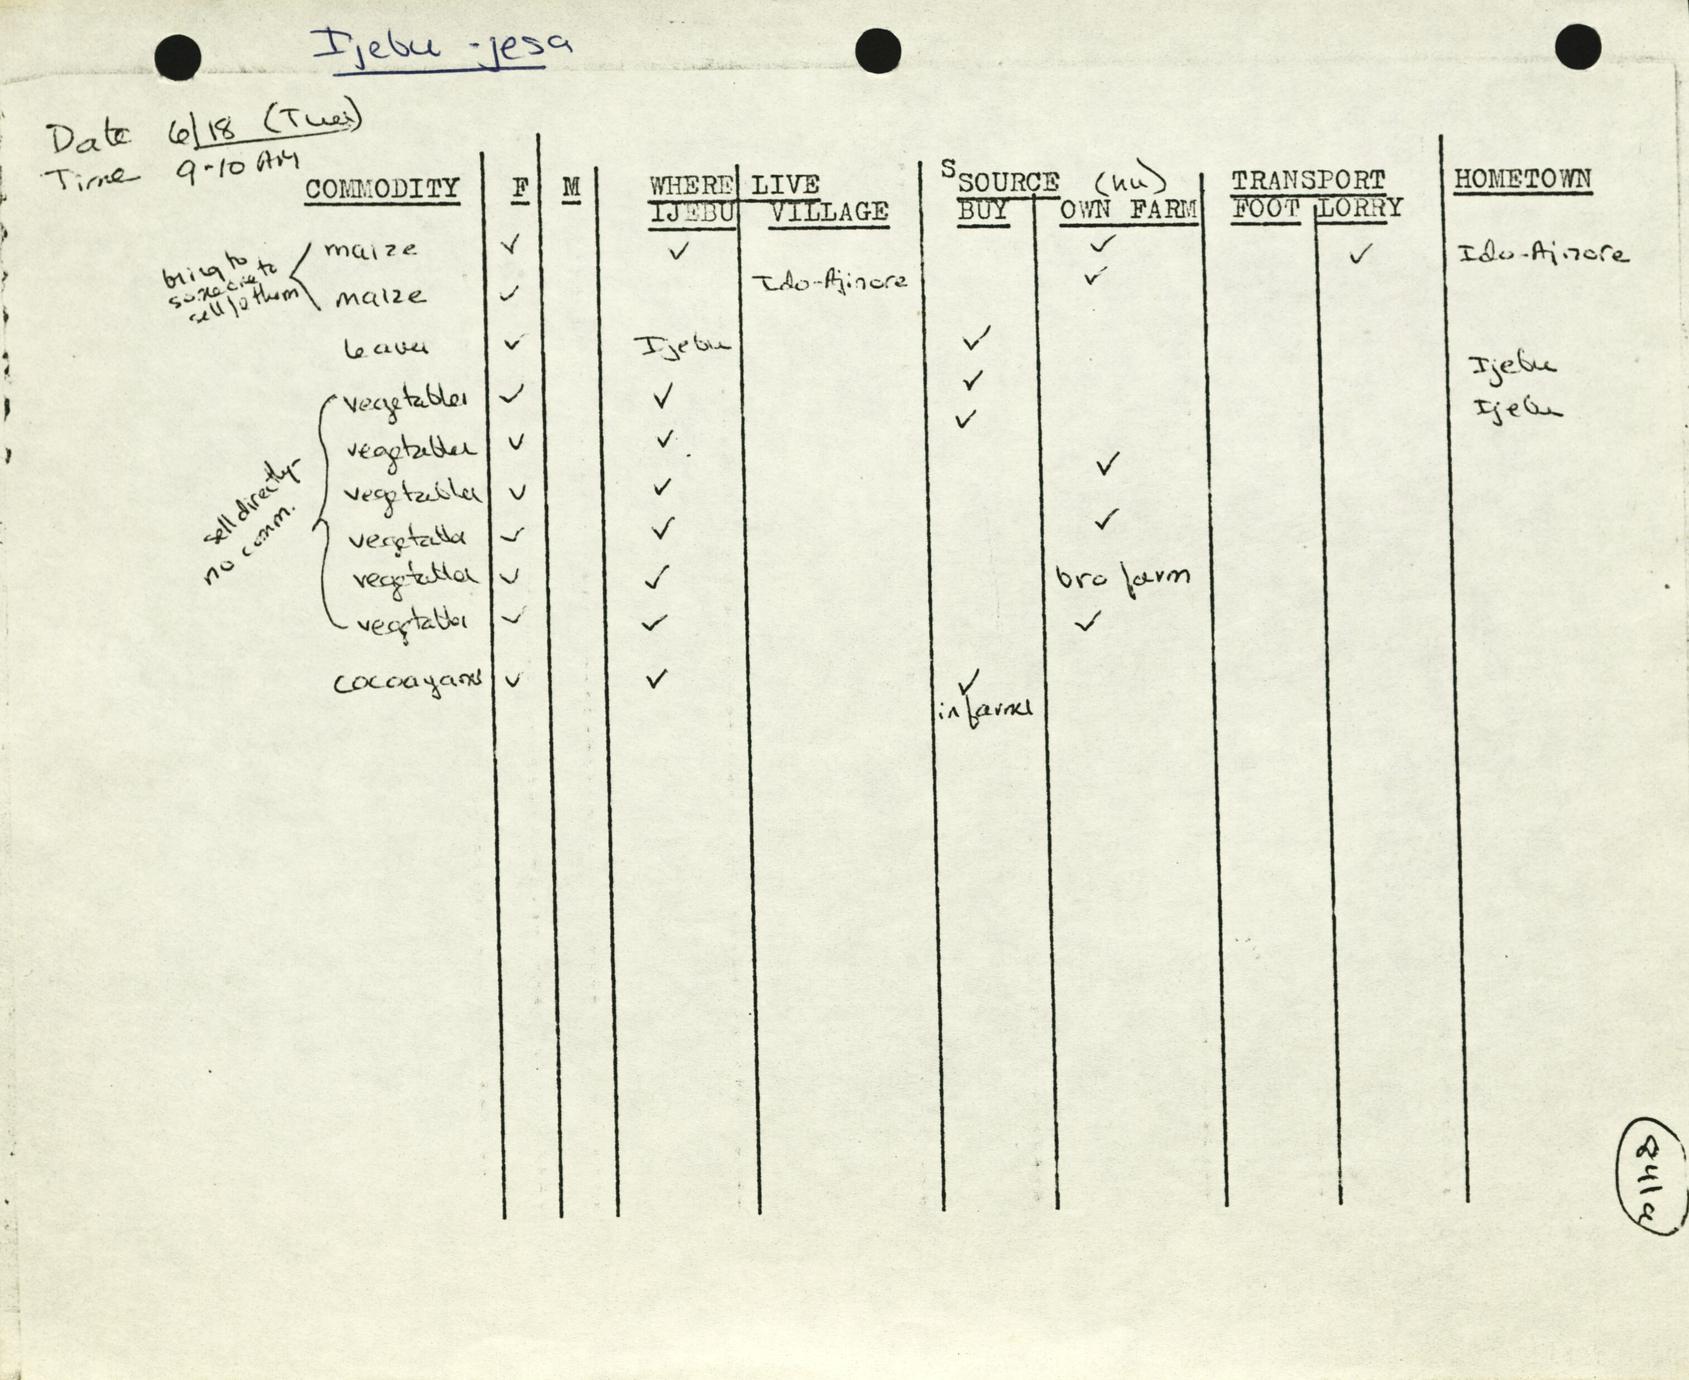 Ijebu-jesa
Date 6/18 (Tues)
Time 9-10 AM
COMMODITY F M WHERE LIVE SSOURCE (hu) TRANSPORT HOMETOWN
IJEBU VILLAGE BUY OWN FARM FOOT LORRY
bring to
someone to
sell/o them
maize ✓ ✓ ✓ ✓ Ido-Ajinore
maize ✓ Ido-Ajinore ✓
leaves ✓ Ijebu ✓ Ijebu
vegetables ✓ ✓ ✓ Ijebu
sell directly-
no comm.
vegetables ✓ ✓ ✓
vegetables ✓ ✓ ✓
vegetables ✓ ✓ ✓
vegetables ✓ ✓ bro farm
vegetables ✓ ✓ ✓
cocoayams ✓ ✓ ✓
in farms
841a